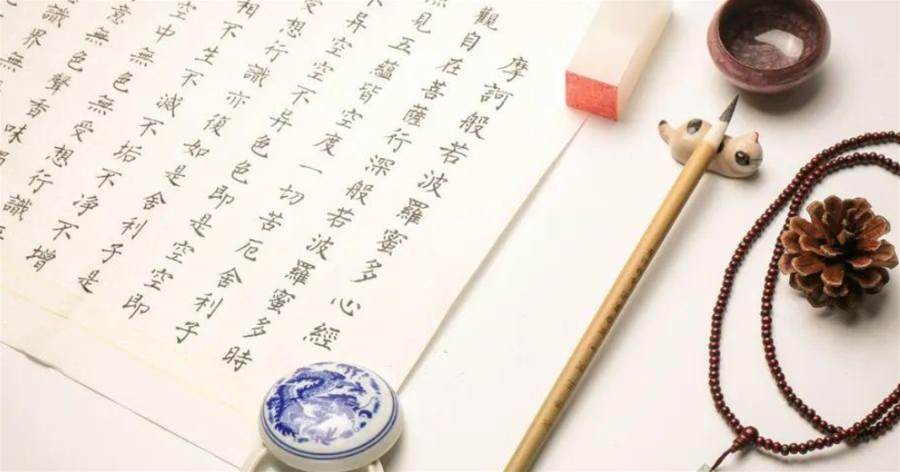 摩訶般若波羅蜜多心經
觀自在菩薩行深般若波羅蜜多時
見五蘊皆空度一切苦厄舍利子
不异空空不异色色即是空空即
受想行識亦復如是舍利子是
相不生不滅不垢不净不增
空中無色無受想行識
意無色聲香味
識界無